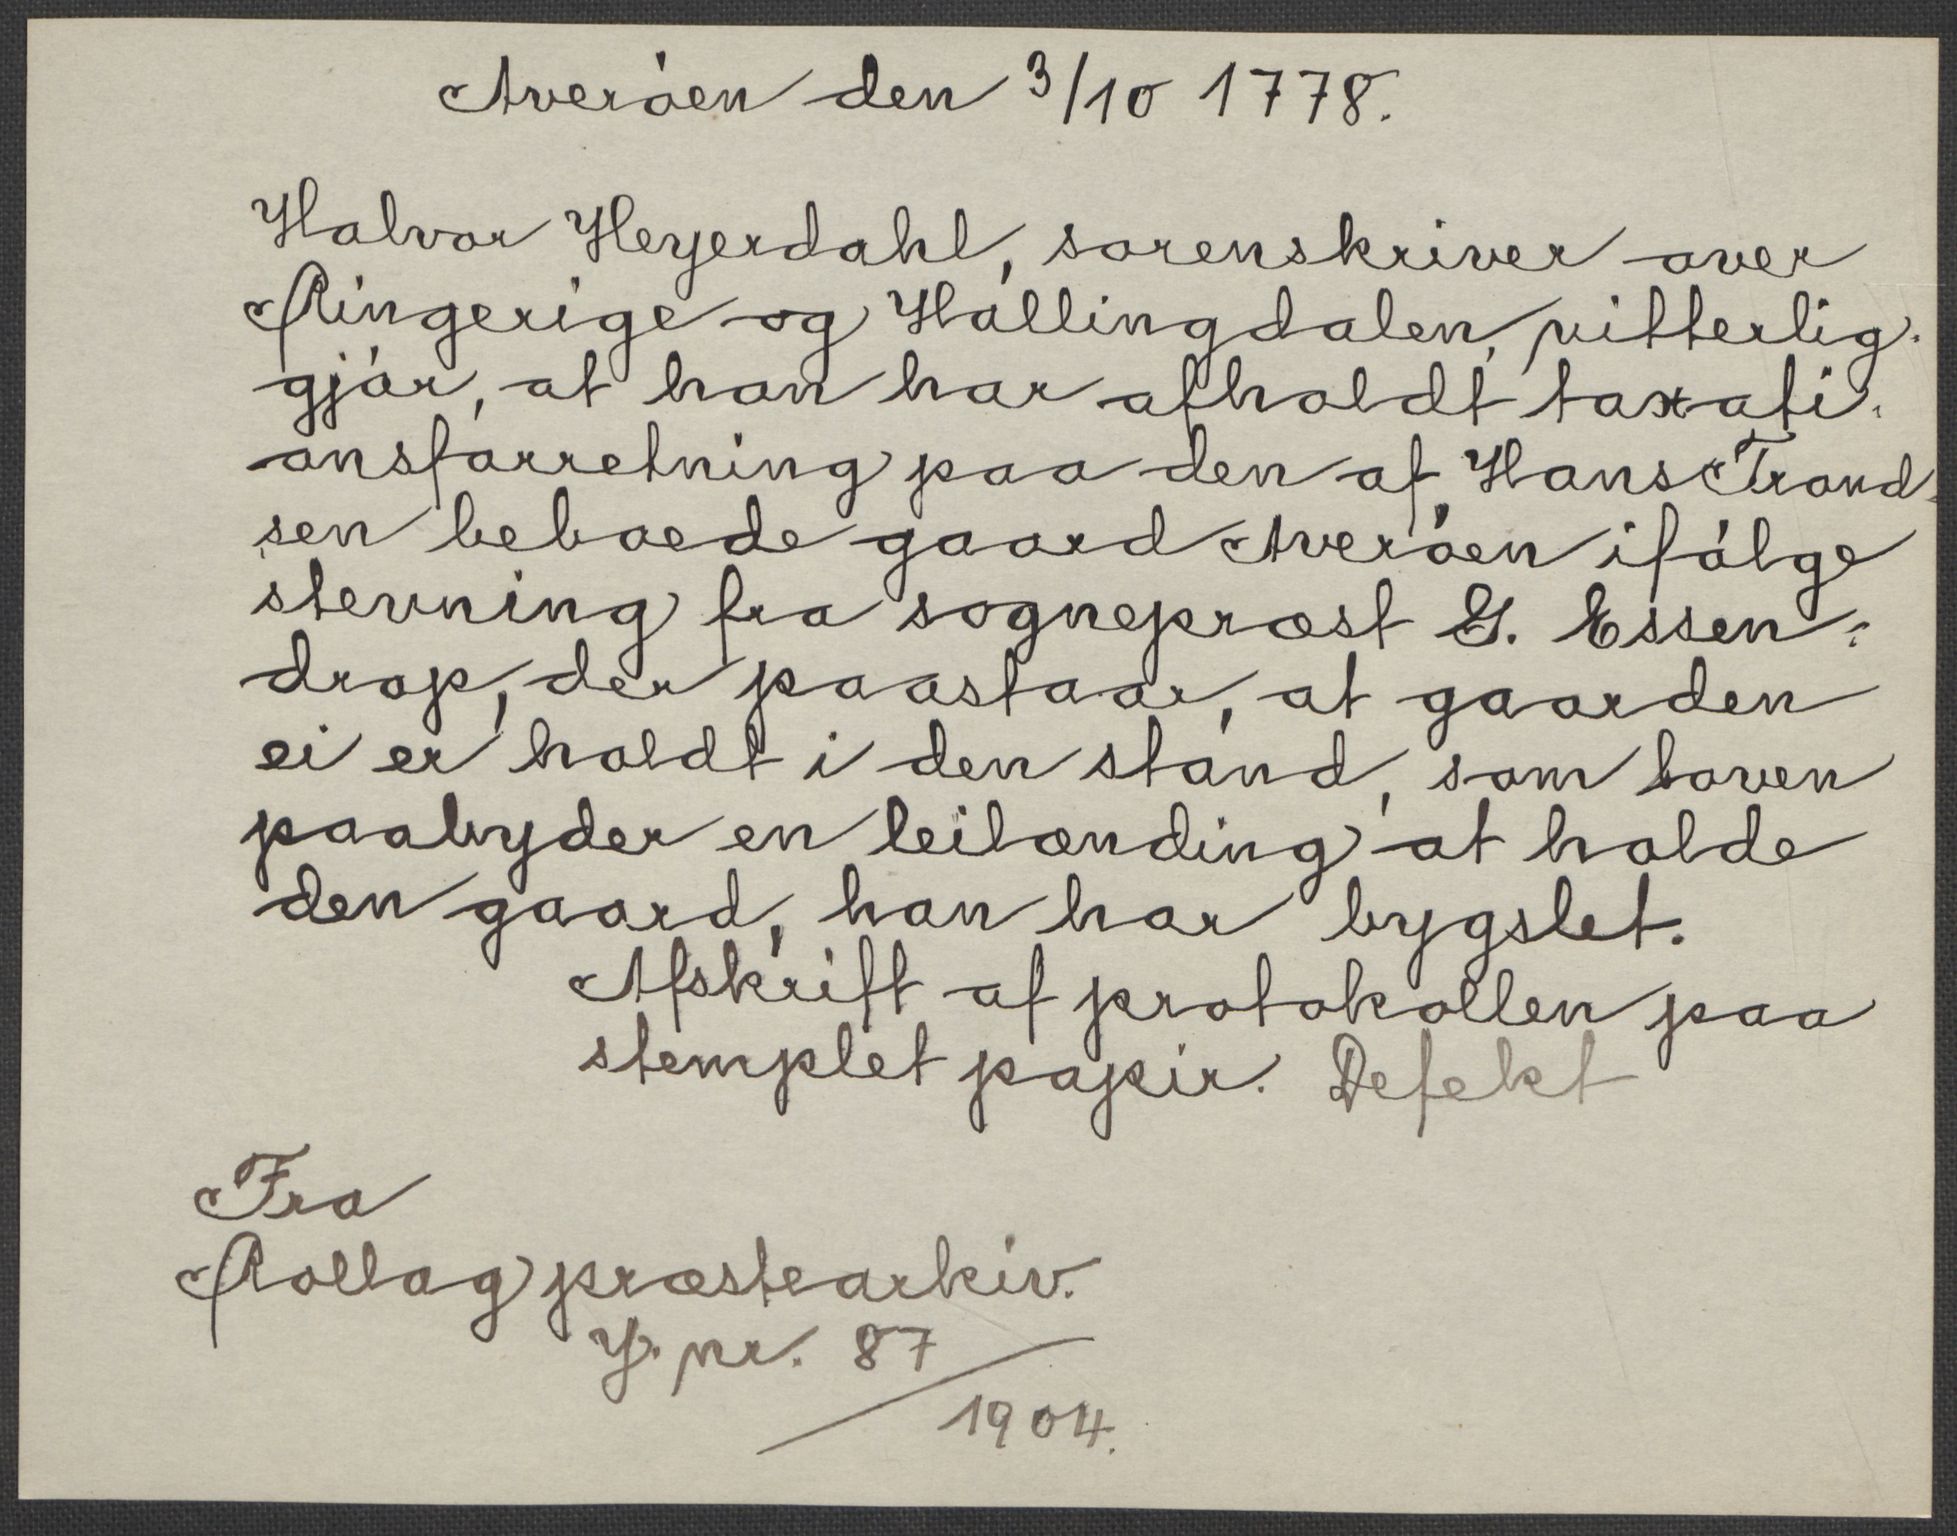 Averøen den 3/10 1778.
Halvor Heyerdahl, sorenskriver over
Ringerige og Hallingdalen, vitterlig-
gjør, at han har afholdt taxati-
onsforretning paa den af Hans Trond-
sen beboede gaard Averøen ifølge
stevning fra sogneprest G. Essen-
drop, der paastaar, at gaarden
ei er holdt i den stand, som loven
paabyder en leilænding at holde
den gaard, han har bygslet.
Afskrift af protokollen paa
stemplet papir. Defekt
Fra
Rollag præstearkiv.
J. nr. 87
/1904.